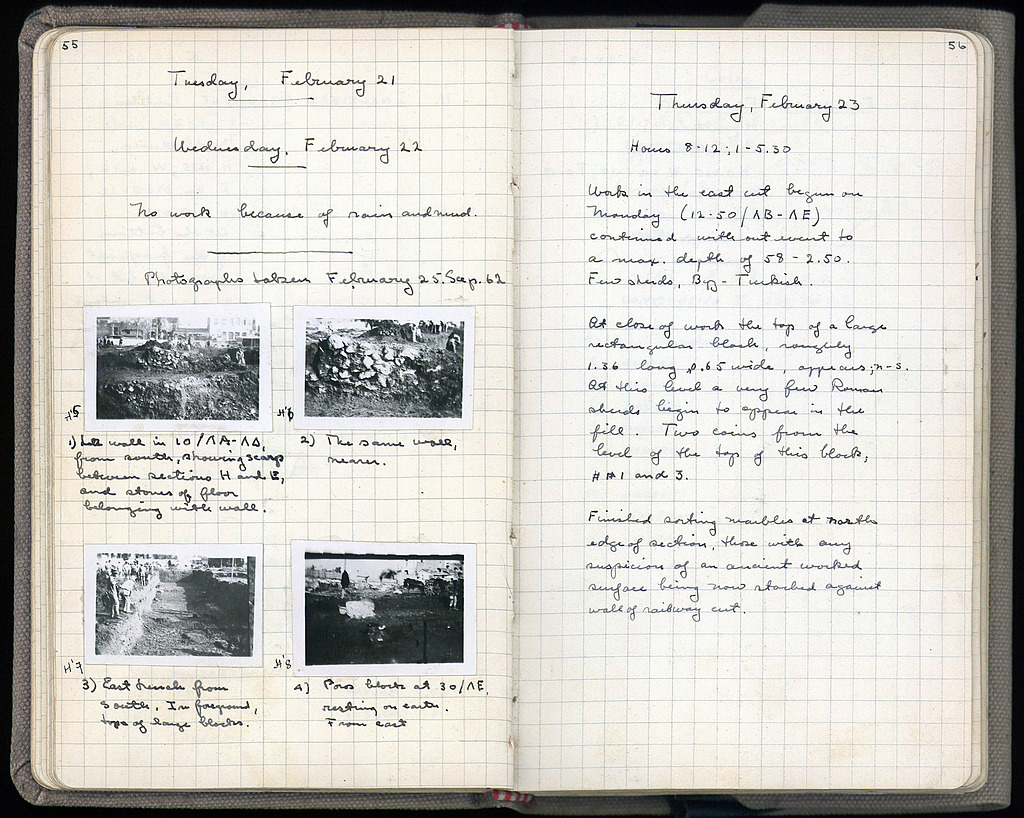 55
Tuesday, February 21
Wednesday, February 22
No work because of rain and mud.
Photographs taken February 25. See p. 62
H'5
1) Late wall in 10/ΛA-ΛΔ,
from south, showing scarp
between sections H and E,
and stones of floor
belonging with wall.
H'6
2) The same wall,
nearer.
H'7
3) East trench from
south. In foreground,
tops of large blocks.
H'8
4) Poros block at 30/ΛE,
resting on earth.
From east
56
Thursday, February 23
Hours 8-12; 1-5.30
Work in the east cut begun on
Monday (12-50/ΛB-ΛE)
continued without event to
a max. depth of 58 - 2.50.
Few sherds, Byz - Turkish.
At close of work the top of a large
rectangular block, roughly
1.36 long, 0.65 wide, appears; n-s.
At this level a very few Roman
sherds begin to appear in the
fill. Two coins from the
level of the top of this block,
## 1 and 3.
Finished sorting marbles at north
edge of section, those with any
suspicion of an ancient worked
surface being now stacked against
wall of railway cut.